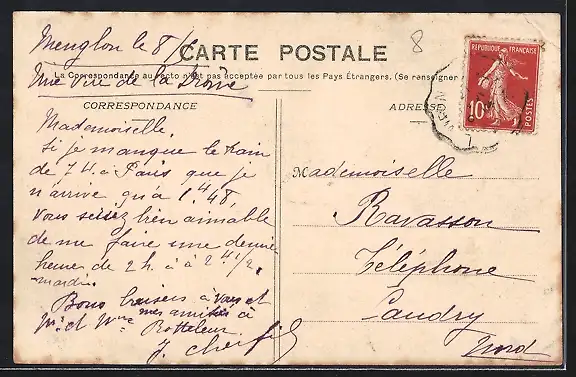 Menglon le 8/6
CARTE POSTALE
8
La Correspondance au recto n'est pas acceptée par tous les Pays Étrangers. (Se renseigner
Une vue de la Drôme
CORRESPONDANCE
ADRESSE
RÉPUBLIQUE FRANÇAISE
10c
POSTES
Mademoiselle,
Si je manque le train
de 7 H. à Paris que je
n'arrive qu'à 1 H 48,
vous seriez bien aimable
de me faire une demie
heure de 2 h. à 2 H 1/2,
mardi.
Bons baisers à vous et
mes amitiés à
Mr. et Mme Rotteleur
J.
Mademoiselle
Ravasson
Téléphone
Caudry
Nord